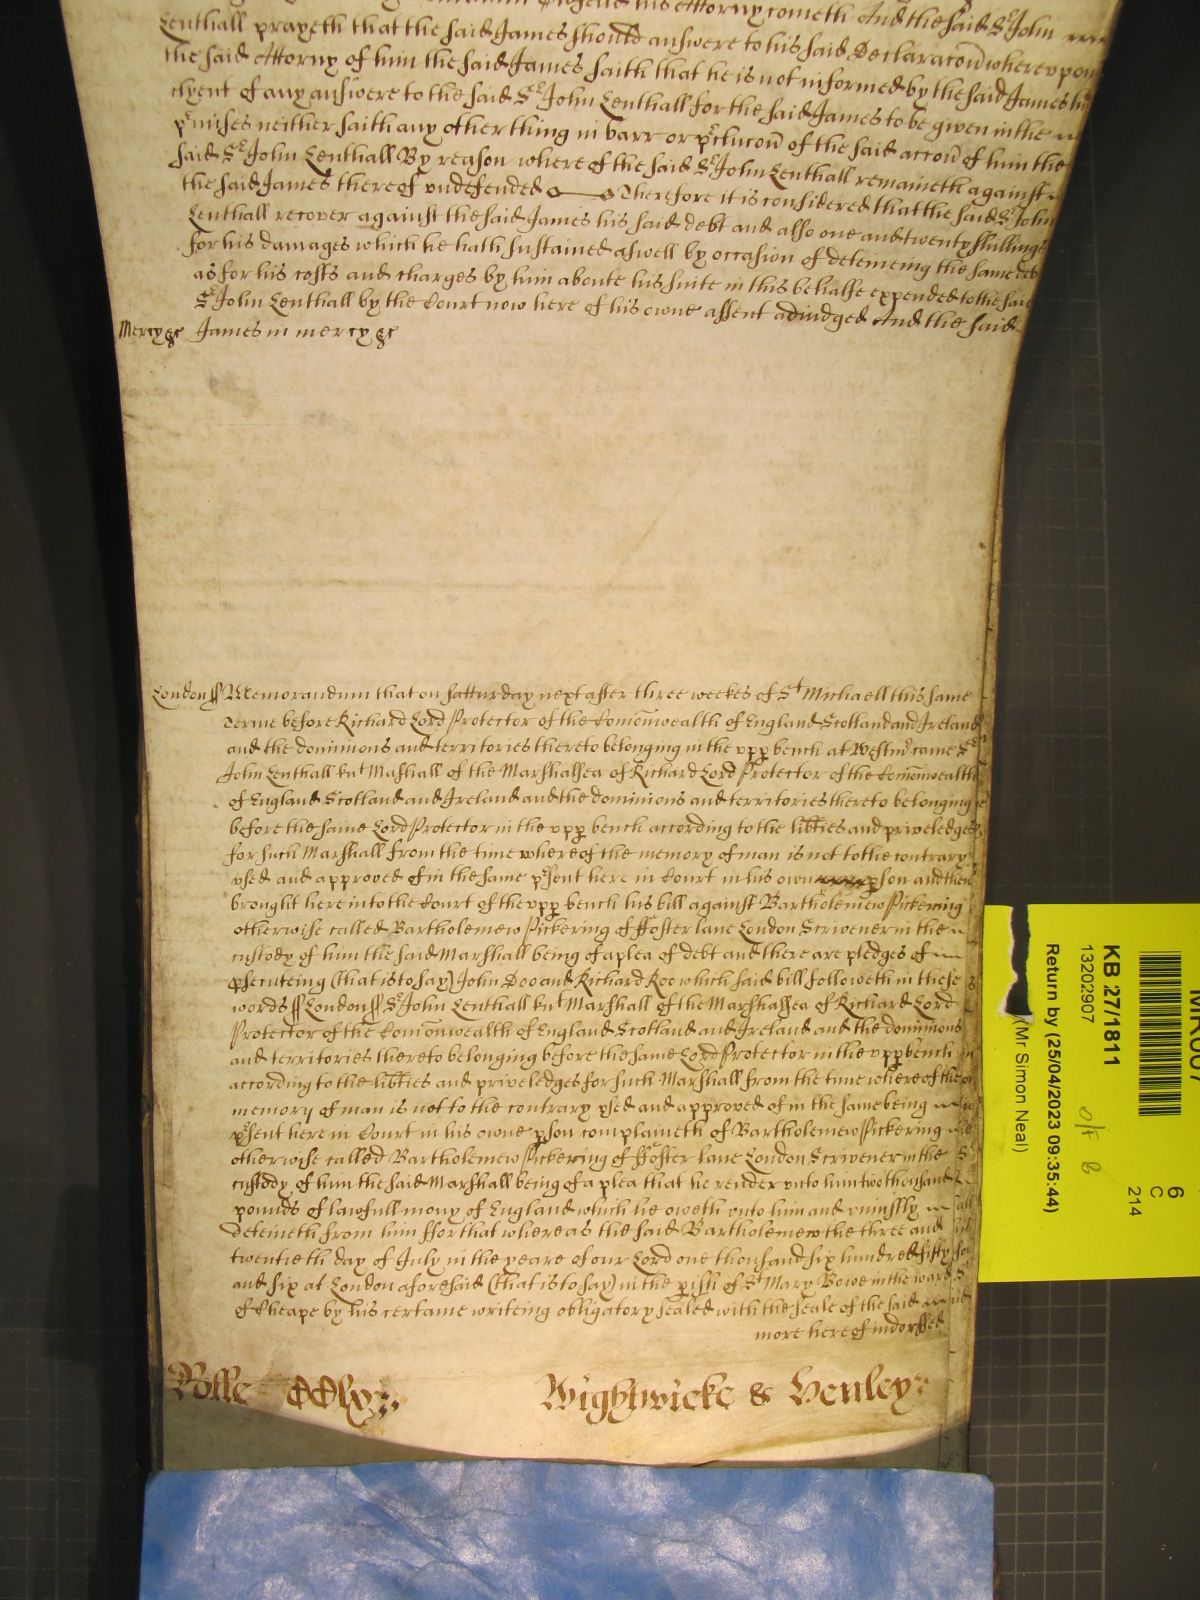 his Attorny cometh And the said Sr John
Lenthall prayeth that the said James should answere to his said Declaracon whereupon
the said Attorny of him the said James saith that he is not informed by the said James his
clyent of any answere to the said Sr John Lenthall for the said James to be given in the
prmises neither saith any other thing in barr or prclucon of the said accon of him the
said Sr John Lenthall By reason whereof the said Sr John Lenthall remaineth against
the said James thereof undefended Therefore it is considered that the said Sr John
Lenthall recover against the said James his said debt and also one and twenty shillings
for his damages which he hath sustained aswell by occasion of deteineing the same debt
as for his costs and charges by him aboute his suite in this behalfe expended to the said
Sr John Lenthall by the Court now here of his owne assent adiudged And the said
Mercy &c James in mercy &c
London ss Memorandum that on Satturday next after three weekes of St Michaell this same
Terme before Richard Lord Protector of the Comonwealth of England Scotland and Ireland
and the dominions and territories thereto belonging in the upp bench at Westmr came Sr
John Lenthall knt Mashall of the Marshallsea of Richard Lord Protector of the Comonwealth
of England Scotland and Ireland and the dominions and territories thereto belonging
before the same Lord Protector in the upp bench according to the libties and priveledges
for such Marshall from the time whereof the memory of man is not to the contrary
used and approved of in the same prsent here in Court in his own pson and then
brought here into the Court of the upp bench his bill against Bartholemew Pickering
otherwise called Bartholemew Pickering of ffoster lane London Scrivener in the
custody of him the said Marshall being of a plea of debt and there are pledges of
psecuteing (that is to say) John Doo and Richard Roo which said bill followeth in these
words ss London ss Sr John Lenthall knt Marshall of the Marshallsea of Richard Lord
Protector of the Comonwealth of England Scotland and Ireland and the dominions
and territories thereto belonging before the same Lord Protector in the upp bench
according to the libties and priveledges for such Marshall from the time whereof the
memory of man is not to the contrary used and approved of in the same being
prsent here in Court in his owne pson complaineth of Bartholemew Pickering
otherwise called Bartholemew Pickering of ffoster lane London Scrivener in the
custody of him the said Marshall being of a plea that he render unto him two thousand
pounds of lawfull mony of England which he oweth unto him and uniustly
deteineth from him ffor that whereas the said Bartholemew the three and
twentieth day of July in the yeare of our Lord one thousand six hundred fifty
and six at London aforesaid (that is to say) in the pish of St Mary Bowe in the ward
of Cheape by his certaine writeing obligatory sealed with the seale of the said
more hereof indorssed
Rolle CClx
Wightwicke & Henley
KB 27/1811
13202907
Return by (25/04/2023 09:35:44)
(Mr Simon Neal)
6
C
214